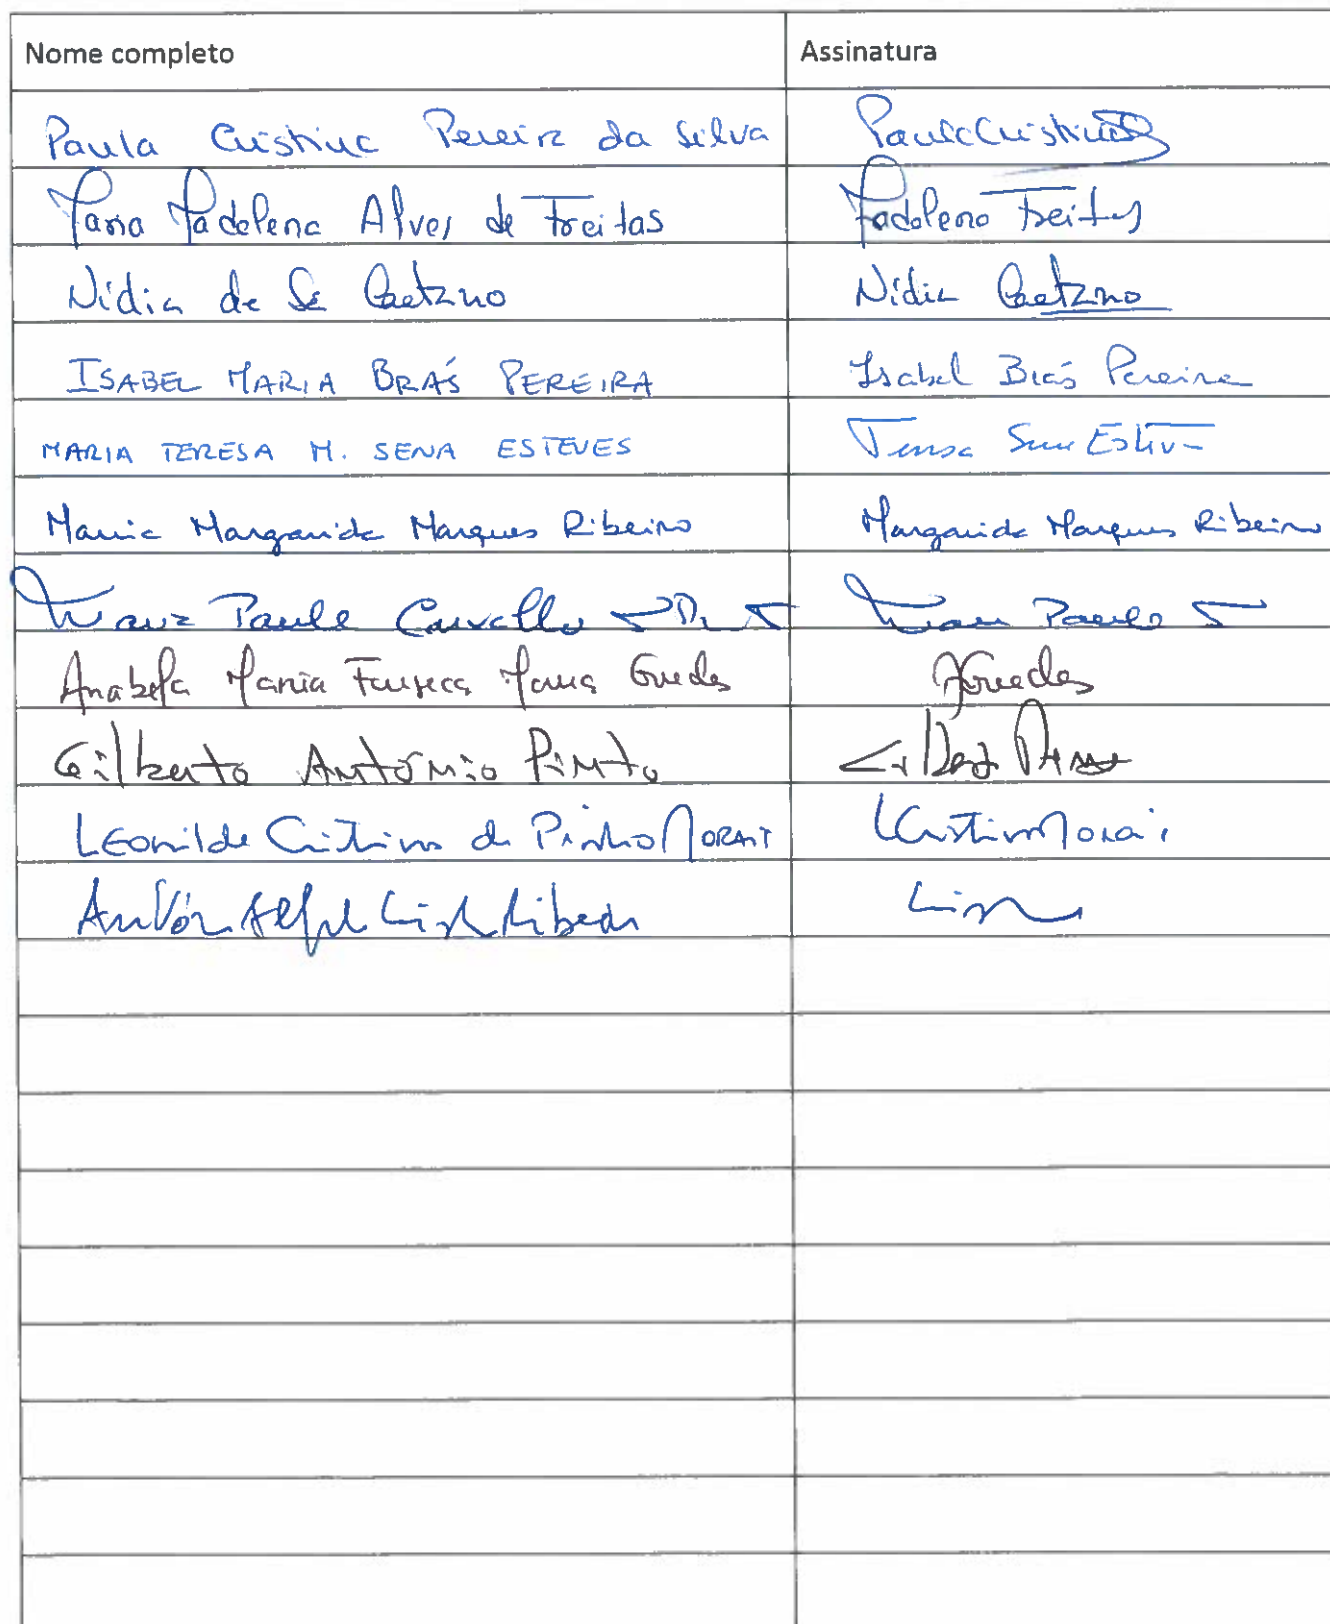 Nome completo Assinatura
Paula Cristina Pereira da Silva Paula Cristina
Maria Madalena Alves de Freitas Madalena Freitas
Nídia de Sá Caetano Nídia Caetano
ISABEL MARIA BRÁS PEREIRA Isabel Brás Pereira
MARIA TERESA M. SENA ESTEVES Teresa Sena Esteves
Maria Margarida Marques Ribeiro Margarida Marques Ribeiro
Maria Paula Carvalho Maria Paula
Anabela Maria Fonseca Guedes AGuedes
Gilberto António Pinto
Leonilde Cristina de Pinho Morais LCristina Morais
António Ribeiro